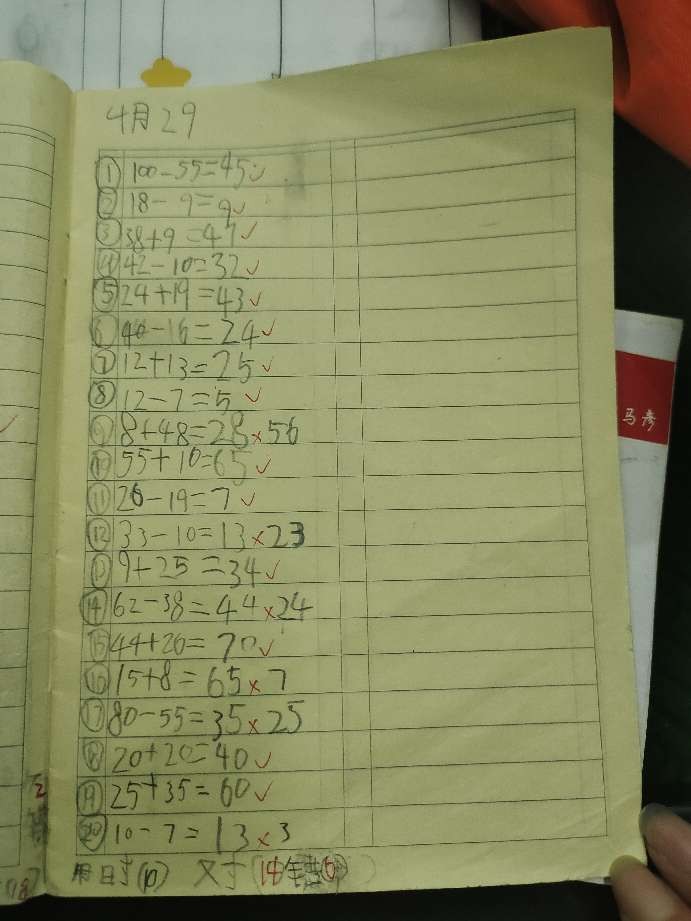 4月29
① 100-55=45✓
② 18-9=9✓
③ 38+9=47✓
④ 42-10=32✓
⑤ 24+19=43✓
⑥ 40-16=24✓
⑦ 12+13=25✓
⑧ 12-7=5✓
⑨ 8+48=28×56
⑩ 55+10=65✓
⑪ 26-19=7✓
⑫ 33-10=13×23
⑬ 9+25=34✓
⑭ 62-38=44×24
⑮ 44+26=70✓
⑯ 15+8=65×7
⑰ 80-55=35×25
⑱ 20+20=40✓
⑲ 25+35=60✓
⑳ 10-7=13×3
用日寸(10) 又寸(14 错6)